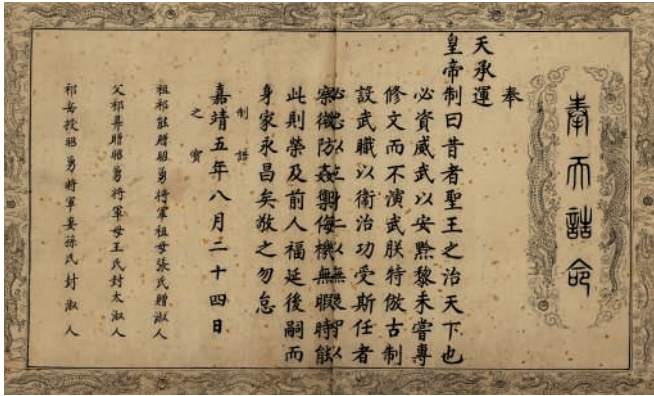 奉天誥命
奉
天承運
皇帝制曰昔者聖王之治天下也
必資威武以安黔黎未嘗專
修文而不演武朕特倣古制
設武職以衛治功受斯任者
必忠以立身仁以
察微防姦禦侮機無暇時能
此則榮及前人福延後嗣而
身家永昌矣敬之勿怠
制誥
嘉靖五年八月二十四日
之寶
祖祁能贈昭勇將軍祖母張氏贈淑人
父祁昇贈昭勇將軍母王氏封太淑人
祁安授昭勇將軍妻孫氏封淑人